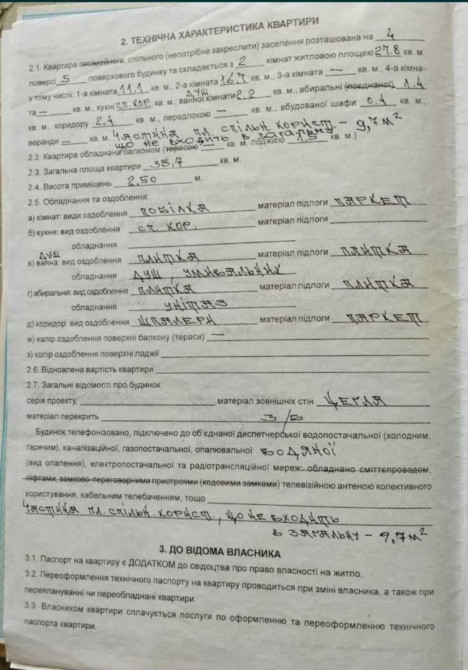 2. ТЕХНІЧНА ХАРАКТЕРИСТИКА КВАРТИРИ
2.1. Квартира окійменного, спільного (непотрібне закреслити) заселення розташована на 4
поверсі 5 поверхового будинку та складається з 2 кімнат житловою площею 27.8 кв. м.
у тому числі: 1-а кімната 11.1 кв. м., 2-а кімната 16.7 кв. м., 3-а кімната — кв. м., 4-а кімна-
та — кв. м., кухні сп. кор. кв. м., душ ванної кімнати 2.2 кв. м., вбиральні (поєднаної) 1.4
кв. м., коридору 2.4 кв. м., передпокою — кв. м., вбудованої шафи 0.4 кв. м.,
веранди — кв. м. Частина пл. спільн. корист. – 9,7 м²
що не входить в загальну
2.2. Квартира обладнана балконом (терасою) — кв. м. лоджією 1.5 кв. м.)
2.3. Загальна площа квартири 35,7 кв. м.
2.4. Висота приміщень 2,50 м.
2.5. Обладнання та оздоблення:
а) кімнат: види оздоблення побілка матеріал підлоги паркет
б) кухня: вид оздоблення сп. кор. матеріал підлоги
обладнання
душ
в) ванна: вид оздоблення плитка матеріал підлоги плитка
обладнання душ, умивальник
г) вбиральня: вид оздоблення плитка матеріал підлоги плитка
обладнання унітаз
д) коридор: вид оздоблення шпалери матеріал підлоги паркет
ж) колір оздоблення поверхні балкону (тераси) —
з) колір оздоблення поверхні лоджії
2.6. Відновлена вартість квартири
2.7. Загальні відомості про будинок
серія проекту, матеріал зовнішніх стін цегла
матеріал перекрить з/б
Будинок телефонізовано, підключено до об'єднаної диспетчерської водопостачальної (холодним,
гарячим), каналізаційної, газопостачальної, опалювальної водяної
(вид опалення), електропостачальної та радіотрансляційної мереж. обладнано сміттєпроводом,
ліфтами, замково-переговорними пристроями (кодовими замками) телевізійною антеною колективного
користування, кабельним телебаченням, тощо
Частина пл. спільн. корист., що не входить
в загальну – 9,7 м²
3. ДО ВІДОМА ВЛАСНИКА
3.1. Паспорт на квартиру є ДОДАТКОМ до свідоцтва про право власності на житло.
3.2. Переоформлення технічного паспорту на квартиру проводиться при зміні власника, а також при
переплануванні чи переобладнанні квартири.
3.3. Власником квартири сплачується послуги по оформленню та переоформленню технічного
паспорта квартири.